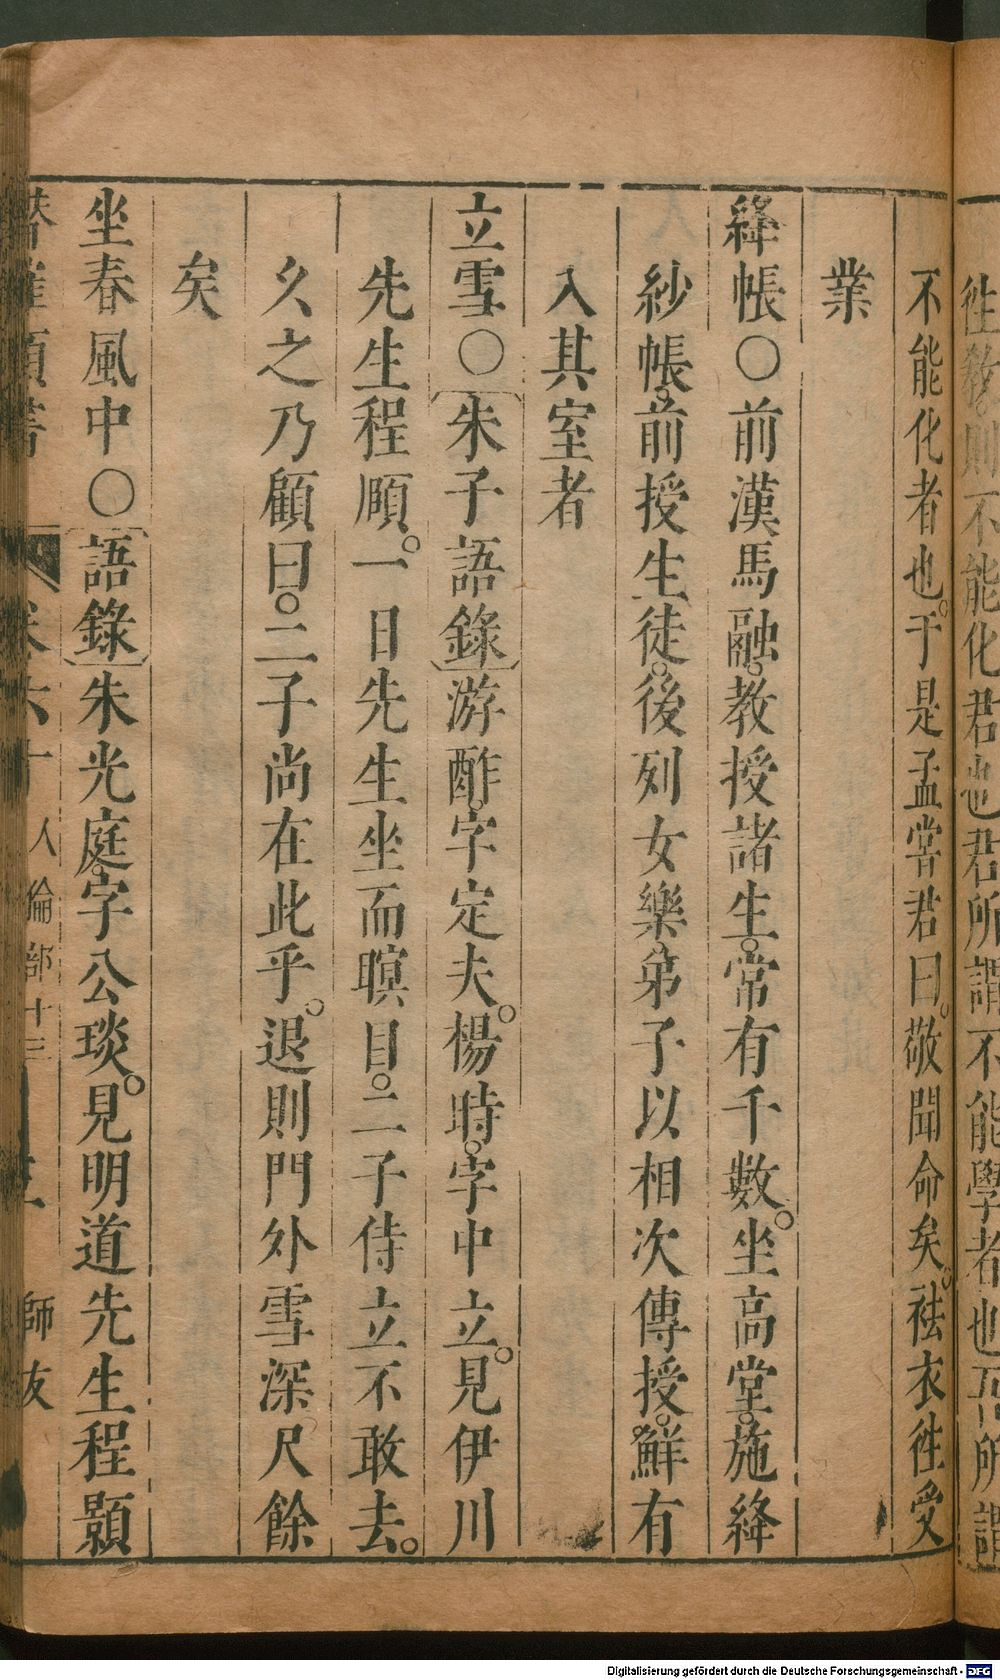 徃敎則不能化君也君所謂不能學者也
不能化者也于是孟嘗君曰敬聞命矣袪衣徃受
業
絳帳○前漢馬融教授諸生常有千數坐高堂施絳
紗帳前授生徒後列女樂弟子以相次傳授鮮有
入其室者
立雪○朱子語錄游酢字定夫楊時字中立見伊川
先生程頤一日先生坐而瞑目二子侍立不敢去
久之乃顧曰二子尚在此乎退則門外雪深尺餘
矣
坐春風中○語錄朱光庭字公琰見明道先生程顥
卷六十 人倫部十三 師友
Digitalisierung gefördert durch die Deutsche Forschungsgemeinschaft - DFG